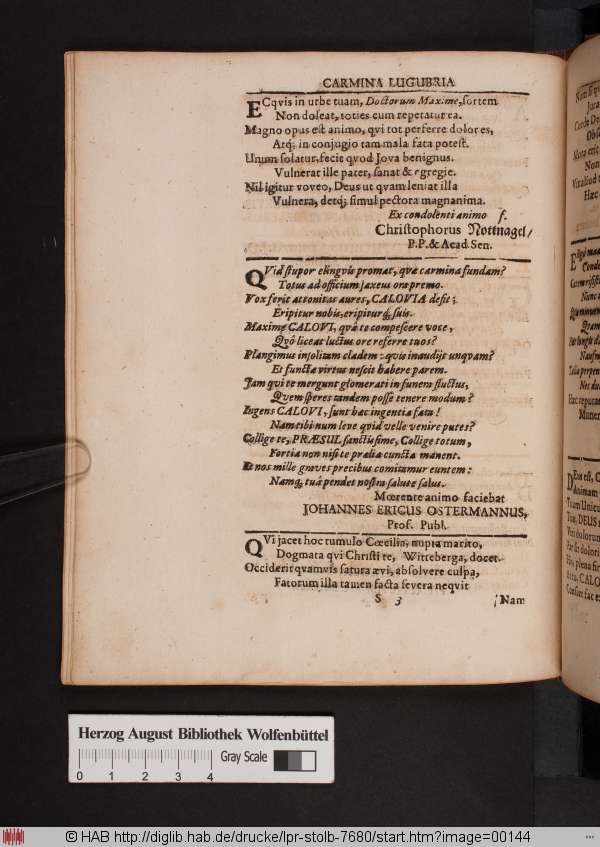 CARMINA LUGUBRIA
ECqvis in urbe tuam, Doctorum Maxime, sortem
Non doleat, toties cum repetatur ea.
Magno opus est animo, qvi tot perferre dolores,
Atq; in conjugio tam mala fata potest.
Unum solatur, fecit qvod Jova benignus.
Vulnerat ille pater, sanat & egregie.
Nil igitur voveo, Deus ut qvam leniat illa
Vulnera, detq; simul pectora magnanima.
Ex condolenti animo f.
Christophorus Nottnagel/
P.P. & Acad. Sen.
QVid stupor elingvis promat, qvæ carmina fundam?
Totus ad officium saxeus ora premo.
Vox ferit attonitas aures, CALOVIA desit;
Eripitur nobis, eripitur q; suis.
Maxime CALOVI, qvâ te compescere voce,
Qvô liceat luctus ore referre tuos?
Plangimus insolitam cladem: qvis inaudijt unqvam?
Et functa virtus nescit habere parem.
Jam qvi te mergunt glomerati in funera fluctus,
Qvem speres tandem posse tenere modum?
Ingens CALOVI, sunt hæc ingentia fata!
Nam tibi num leve qvid velle venire putes?
Collige te, PRÆSUL sanctissime, Collige totum,
Fortia non nisi te prælia cuncta manent.
Et nos mille graves precibus comitamur euntem:
Namq; tuâ pendet nostra salute salus.
Mœrente animo faciebat
JOHANNES ERICUS OSTERMANNUS,
Prof. Publ.
QVi jacet hoc tumulo Cœcilia, nupta marito,
Dogmata qvi Christi te, Witteberga, docet.
Occiderit qvamvis satura ævi, absolvere culpa,
Fatorum illa tamen facta severa neqvit
S 3
Nam
Herzog August Bibliothek Wolfenbüttel
Gray Scale
0 1 2 3 4
© HAB http://diglib.hab.de/drucke/lpr-stolb-7680/start.htm?image=00144